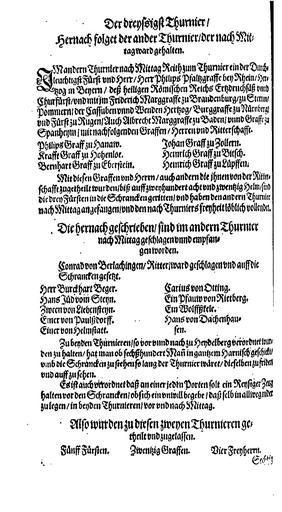 Der dreyssigst Thurnier/
Hernach folget der ander Thurnier/ der nach Mit-
tag ward gehalten.
IM andern Thurnier nach Mittag Reith zum Thurnier ein der Durch-
leuchtigst Fürst und Herr/ Herr Philips Pfaltzgraffe bey Rhein/ Her-
tzog in Beyern/ deß heiligen Römischen Reichs Ertzdruchsäß und
Churfürst/ und mit jm Friderich Marggraffe zu Brandenburg/ zu Stetin/
Pommern/ der Cassuben und Wenden Hertzog/ Burggraffe zu Nürnberg
und Fürst zu Rugen/ Auch Albrecht Marggraffe zu Baden/ unnd Graffe zu
Spanheym/ mit nachfolgenden Graffen/ Herren und Ritterschafft.
Philips Graff zu Hanaw. Johan Graff zu Zollern.
Krafft Graff zu Hohenloe. Heinrich Graff zu Bitsch.
Bernhart Graff zu Eberstein. Heinrich Graff zu Lupffen.
Mit diesen Graffen und Herrn/ auch andern die jhnen von der Ritter-
schafft zugetheilt wurden/ biß auff zweyhundert acht und zwentzig Helm/ sind
die drey Fürsten in die Schrancken geritten/ und haben den andern Thurnier
nach Mittag angefangen/ und den nach Thurniers freyheit löblich vollendt.
Die hernach geschrieben/ sind im andern Thurnier
nach Mittag geschlagen unnd empfan-
gen worden.
Conrad von Berlachingen/ Ritter/ ward geschlagen und auff die
Schrancken gesetzt.
Herr Burckhart Beger. Carius von Otting.
Hans Züd vom Steyn. Ein Pfauw von Rietberg.
Zween von Liebensteyn. Ein Wolffskele.
Einer von Paulßdorff. Hans von Dachenhau-
Einer von Helmstatt. sen.
Zu beyden Thurnieren/ so vor unnd nach zu Heydelberg verordnet wur-
den zu halten/ hat man ob sechßhundert Mañ in gantzem Harnisch geschickt/
umb die Schrancken zu stehen so lang der Thurnier wäret/ dieselben zu friden
und auff zusehen.
Es ist auch verordnet daß an einer jeden Porten solt ein Reysiger Zeug
halten vor den Schrancken/ ob sich ein unwill begebe/ daß selb in allwege nider
zu legen/ in beyden Thurnieren/ vor und nach Mittag.
Also wurden zu diesen zweyen Thurnieren ge-
theilt und zugelassen.
Fünff Fürsten. Zwentzig Graffen. Vier Freyherrn.